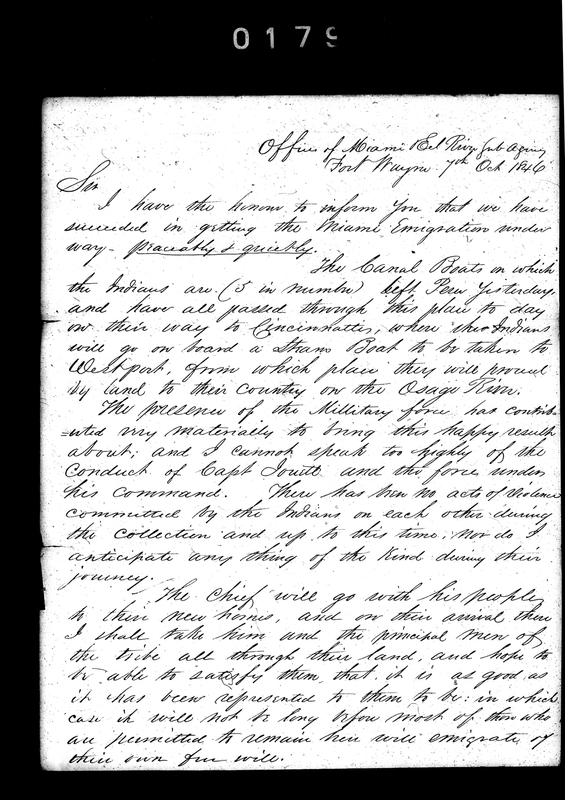 0179
Office of Miami & Eel River Sub Agency
Fort Wayne 7th Oct 1846
Sir
I have the honour to inform you that we have
succeeded in getting the Miami Emigration under
way - peaceably & quietly.
The Canal Boats on which
the Indians are (5 in number) left Peru yesterday,
and have all passed through this place to day
on their way to Cincinnatti, where the Indians
will go on board a Steam Boat to be taken to
Westport, from which place they will proceed
by land to their Country on the Osage River.
The presence of the Millitary force has contrib-
=uted very materially to bring this happy result
about; and I cannot speak too highly of the
conduct of Capt Jouett and the force under
his command. There has been no acts of violence
committed by the Indians on each other during
the collection and up to this time; nor do I
anticipate any thing of the kind during their
journey.
The Chief will go with his people
to their new homes, and on their arrival there
I shall take him and the principal men of
the tribe all through their land, and hope to
be able to satisfy them that it is as good as
it has been represented to them to be: in which
case it will not be long before most of those who
are permitted to remain here will emigrate of
their own free will.